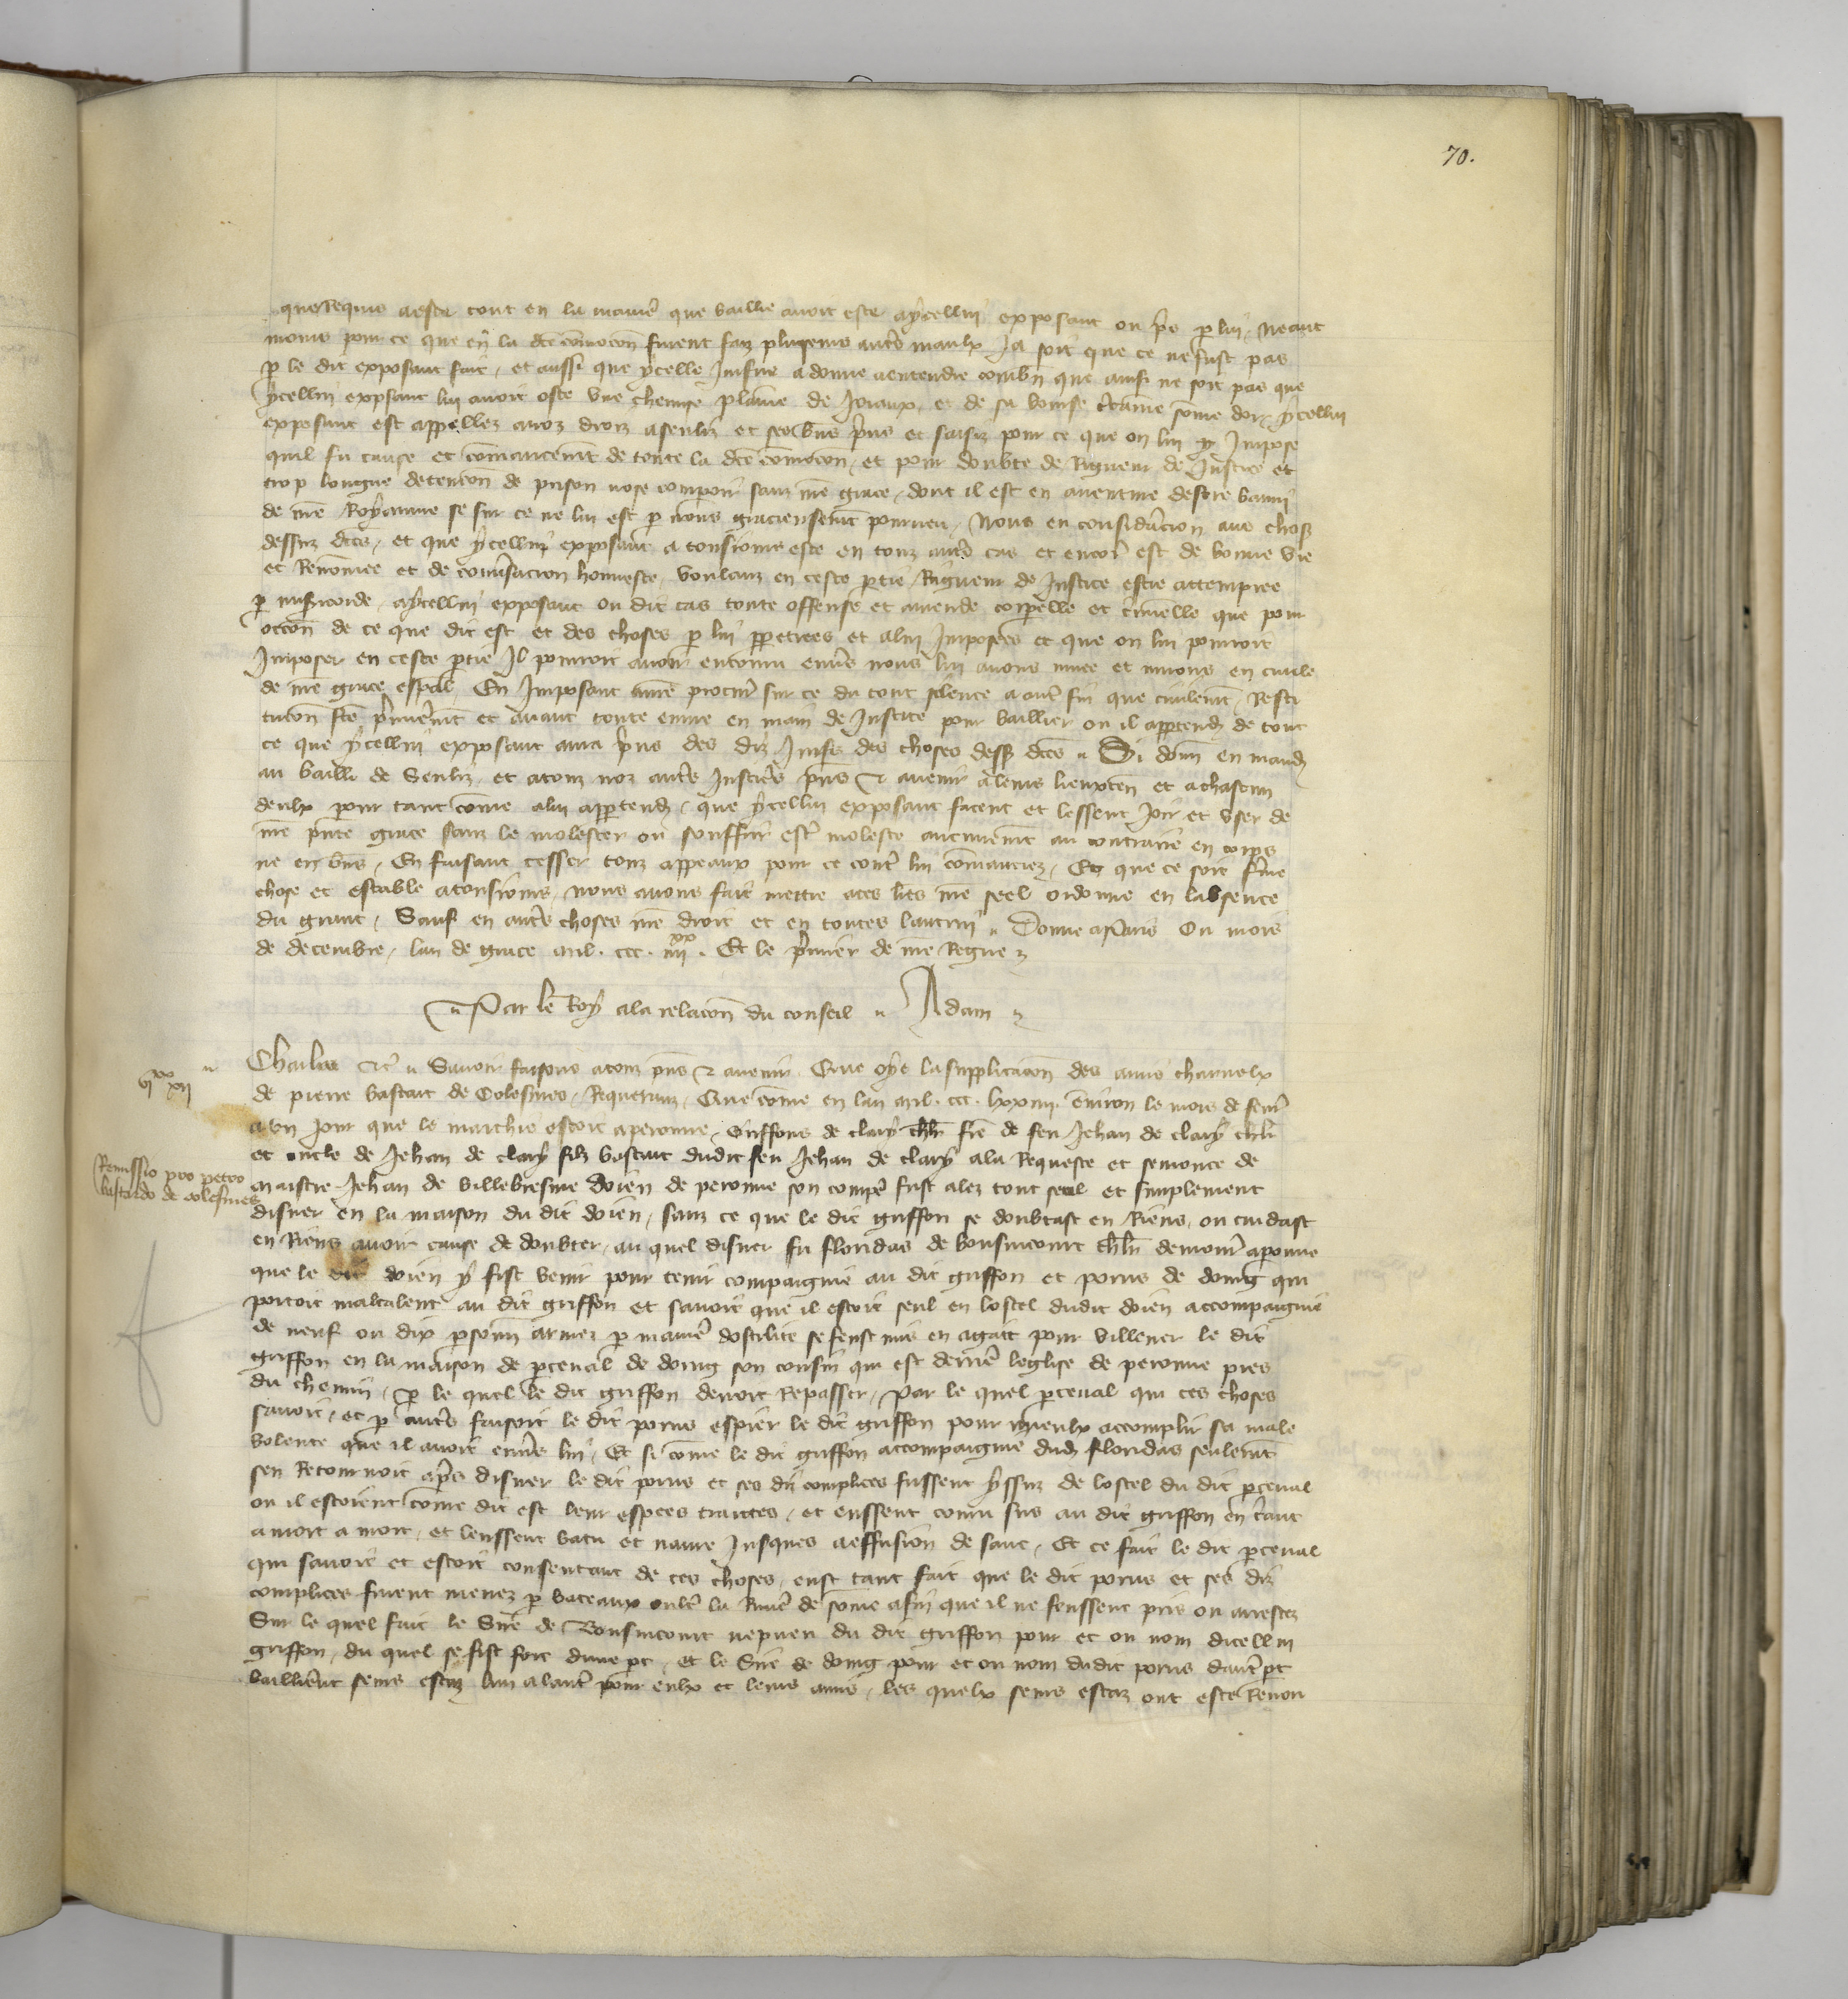 70.
que Requis a esté tout en la manie que baillié avoit esté a ycellui exposant ou pris p lui, Neant
moins pour ce que en la dce comocon furent faiz pluseurs autres maulx Ja soit que ce ne fust pas
p le dit exposant fait, et aussi que ycelle Juifve a donné a entendre combn que ainsi ne soit pas que
ycellui exposant lui avoit osté une chemise plaine de Joiaux, et de sa bourse ctaine some dor, ycellui
exposant est appellez a noz droiz a Senliz et ses bns prins et saisiz pour ce que on lui Impose
quil fu cause et comancemt de toute la dce comocon, et pour doubte de Rigueur de Justice et
trop longue detencon de prison nose comparoir sanz nre grace, dont il est en aventure destre banni
de nre Royaume se sur ce ne lui est p nous gracieusemt pourveu, Nous en consideracion aus choses
dessuz dces, et que ycellui exposant a tousjours esté en touz autres cas et encor est de bonne vie
et Renommee et de conversacion honneste, voulanz en ceste ptie Rigueur de Justice estre attempree
p misericorde, a ycellui exposant ou dit cas toute offense et amende corpelle et criminelle que pour
occon de ce que dit est et des choses p lui perpetrees et a lui Imposees et que on lui pourroit
Imposer en ceste ptie Il pourroit avoir encouru envers nous lui avons muee et muons en civile
de nre grace espal En Imposant a nre procur sur ce du tout silence a autre fin que civilemt, Resti
tucon fce premieremt et avant toute euvre en main de Justice pour baillier ou il appartendra de tout
ce que ycellui exposant aura prins des diz Juifs des choses dessus dces. Si donn en mandem
au bailli de Senliz, et a touz noz autres Justiciers pns & avenir a leurs lieuxten et a chascun
deulx pour tant come a lui appartendra, que ycellui exposant facent et lessent Joir et user de
nre pnte grace sanz le molester ou souffrir estre molesté aucunemt au contraire en corps
ne en bns, En faisant cesser touz appeaux pour ce contre lui comanciez, Et que ce soit ferme
chose et estable a tousjours, nous avons fait mettre a ces lres nre seel ordonné en labsence
du grant, Sauf en autres choses nre droit et en toutes lautrui. Donné a Paris Ou mois
de decembre, lan de grace mil. ccc. iiiixx. Et le premier de nre Regne
Par le Roy a la relacon du conseil. Adam
vixx xii
Charles etc. Savoir faisons a touz pns & avenir Que oye la supplicacon des amis charnelx
de pierre bastart de Solesmes, Requerans, Que come en lan mil. ccc. lxxiiii. environ le mois de fevrier
a un Jour que le marchié estoit a peronne, Griffons de clary chlr frere de feu Jehan de clary chlr
et oncle de Jehan de clary filz bastart dudit feu Jehan de clary a la Requeste et semonce de
Remissio pro petro
bastardo de solesmes
maistre Jehan de Villebresme doien de peronne son compere fust alez tout seul et simplement
disner en la maison du dit doien, sanz ce que le dit griffon se doubtast en Riens, ou cuidast
en Riens avoir cause de doubter, au quel disner fu floridas de bousincourt chlr demourant a peronne
que le dit doien y fist venir pour tenir compaignie au dit griffon et porrus de doing qui
portoit maltalent au dit griffon et savoit que il estoit seul en lostel dudit doien accompaignié
de neuf ou dix personnes armez p maniere dostilité se feust mis en agait pour villener le dit
griffon en la maison de perceval de doing son cousin qui est derriere leglise de peronne pres
du chemin, p le quel le dit griffon devoit Repasser, Par le quel perceval qui ces choses
savoit, et p autres faisoit le dit porrus espier le dit griffon pour mieulx accomplir sa male
volenté que il avoit envers lui, Et si come le dit griffon accompaignié dudit floridas seulemt
sen Retournoit apres disner le dit porrus et ses diz complices fussent yssuz de lostel du dit perceval
ou il estoient come dit est leur espees traictes, et eussent couru sus au dit griffon en criant
a mort a mort, et leussent batu et navré Jusques a effusion de sanc, Et ce fait le dit perceval
qui savoit et estoit consentant de ces choses, eust tant fait que le dit porrus et ses diz
complices furent menez p bateaux oultre la Riviere de some afin que il ne feussent pris ou arrestez
Sur le quel fait le Sire de Bousincourt nepveu du dit griffon pour et ou nom dicellui
griffon, du quel se fist fort dune pt, et le Sire de doing pour et ou nom dudit porrus dautre pt
baillierent seurs estaz lun a lautre pour eulx et leurs amis, les quelx seurs estaz ont esté Renou